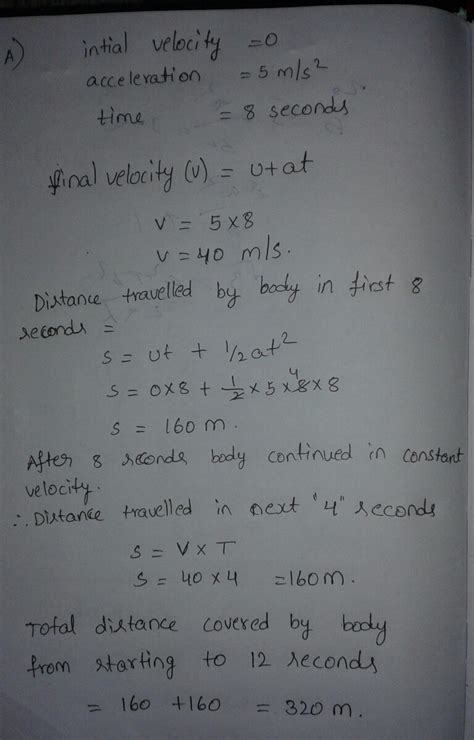 A) intial velocity = 0
acceleration = 5 m/s²
time = 8 seconds
final velocity (v) = u+at
v = 5×8
v = 40 m/s.
Distance travelled by body in first 8
seconds =
s = ut + 1/2at²
s = 0×8 + 1/2 × 5 × 8 4 × 8
s = 160 m.
After 8 seconds body continued in constant
velocity.
∴ Distance travelled in next "4" seconds
s = V × T
s = 40 × 4 = 160m.
Total distance covered by body
from starting to 12 seconds
= 160 + 160 = 320 m.